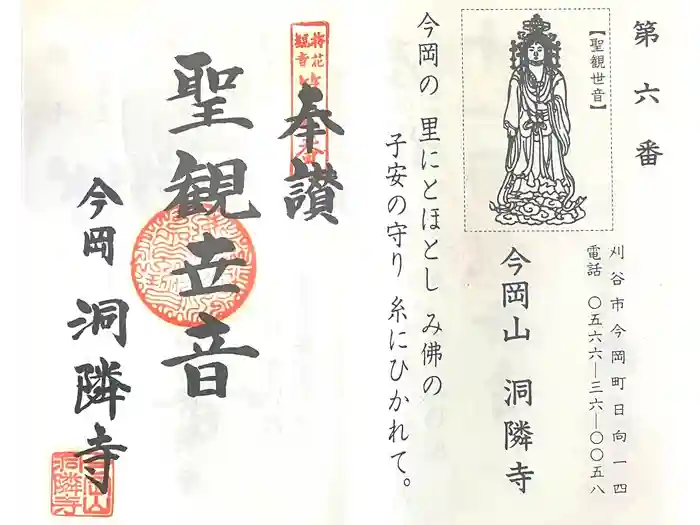 第六番
【聖観世音】
刈谷市今岡町日向一四
電話 〇五六六―三六―〇〇五八
今岡山 洞隣寺
今岡の 里にとほとし み佛の
子安の守り 糸にひかれて。
奉讃
聖観世音
今岡 洞隣寺